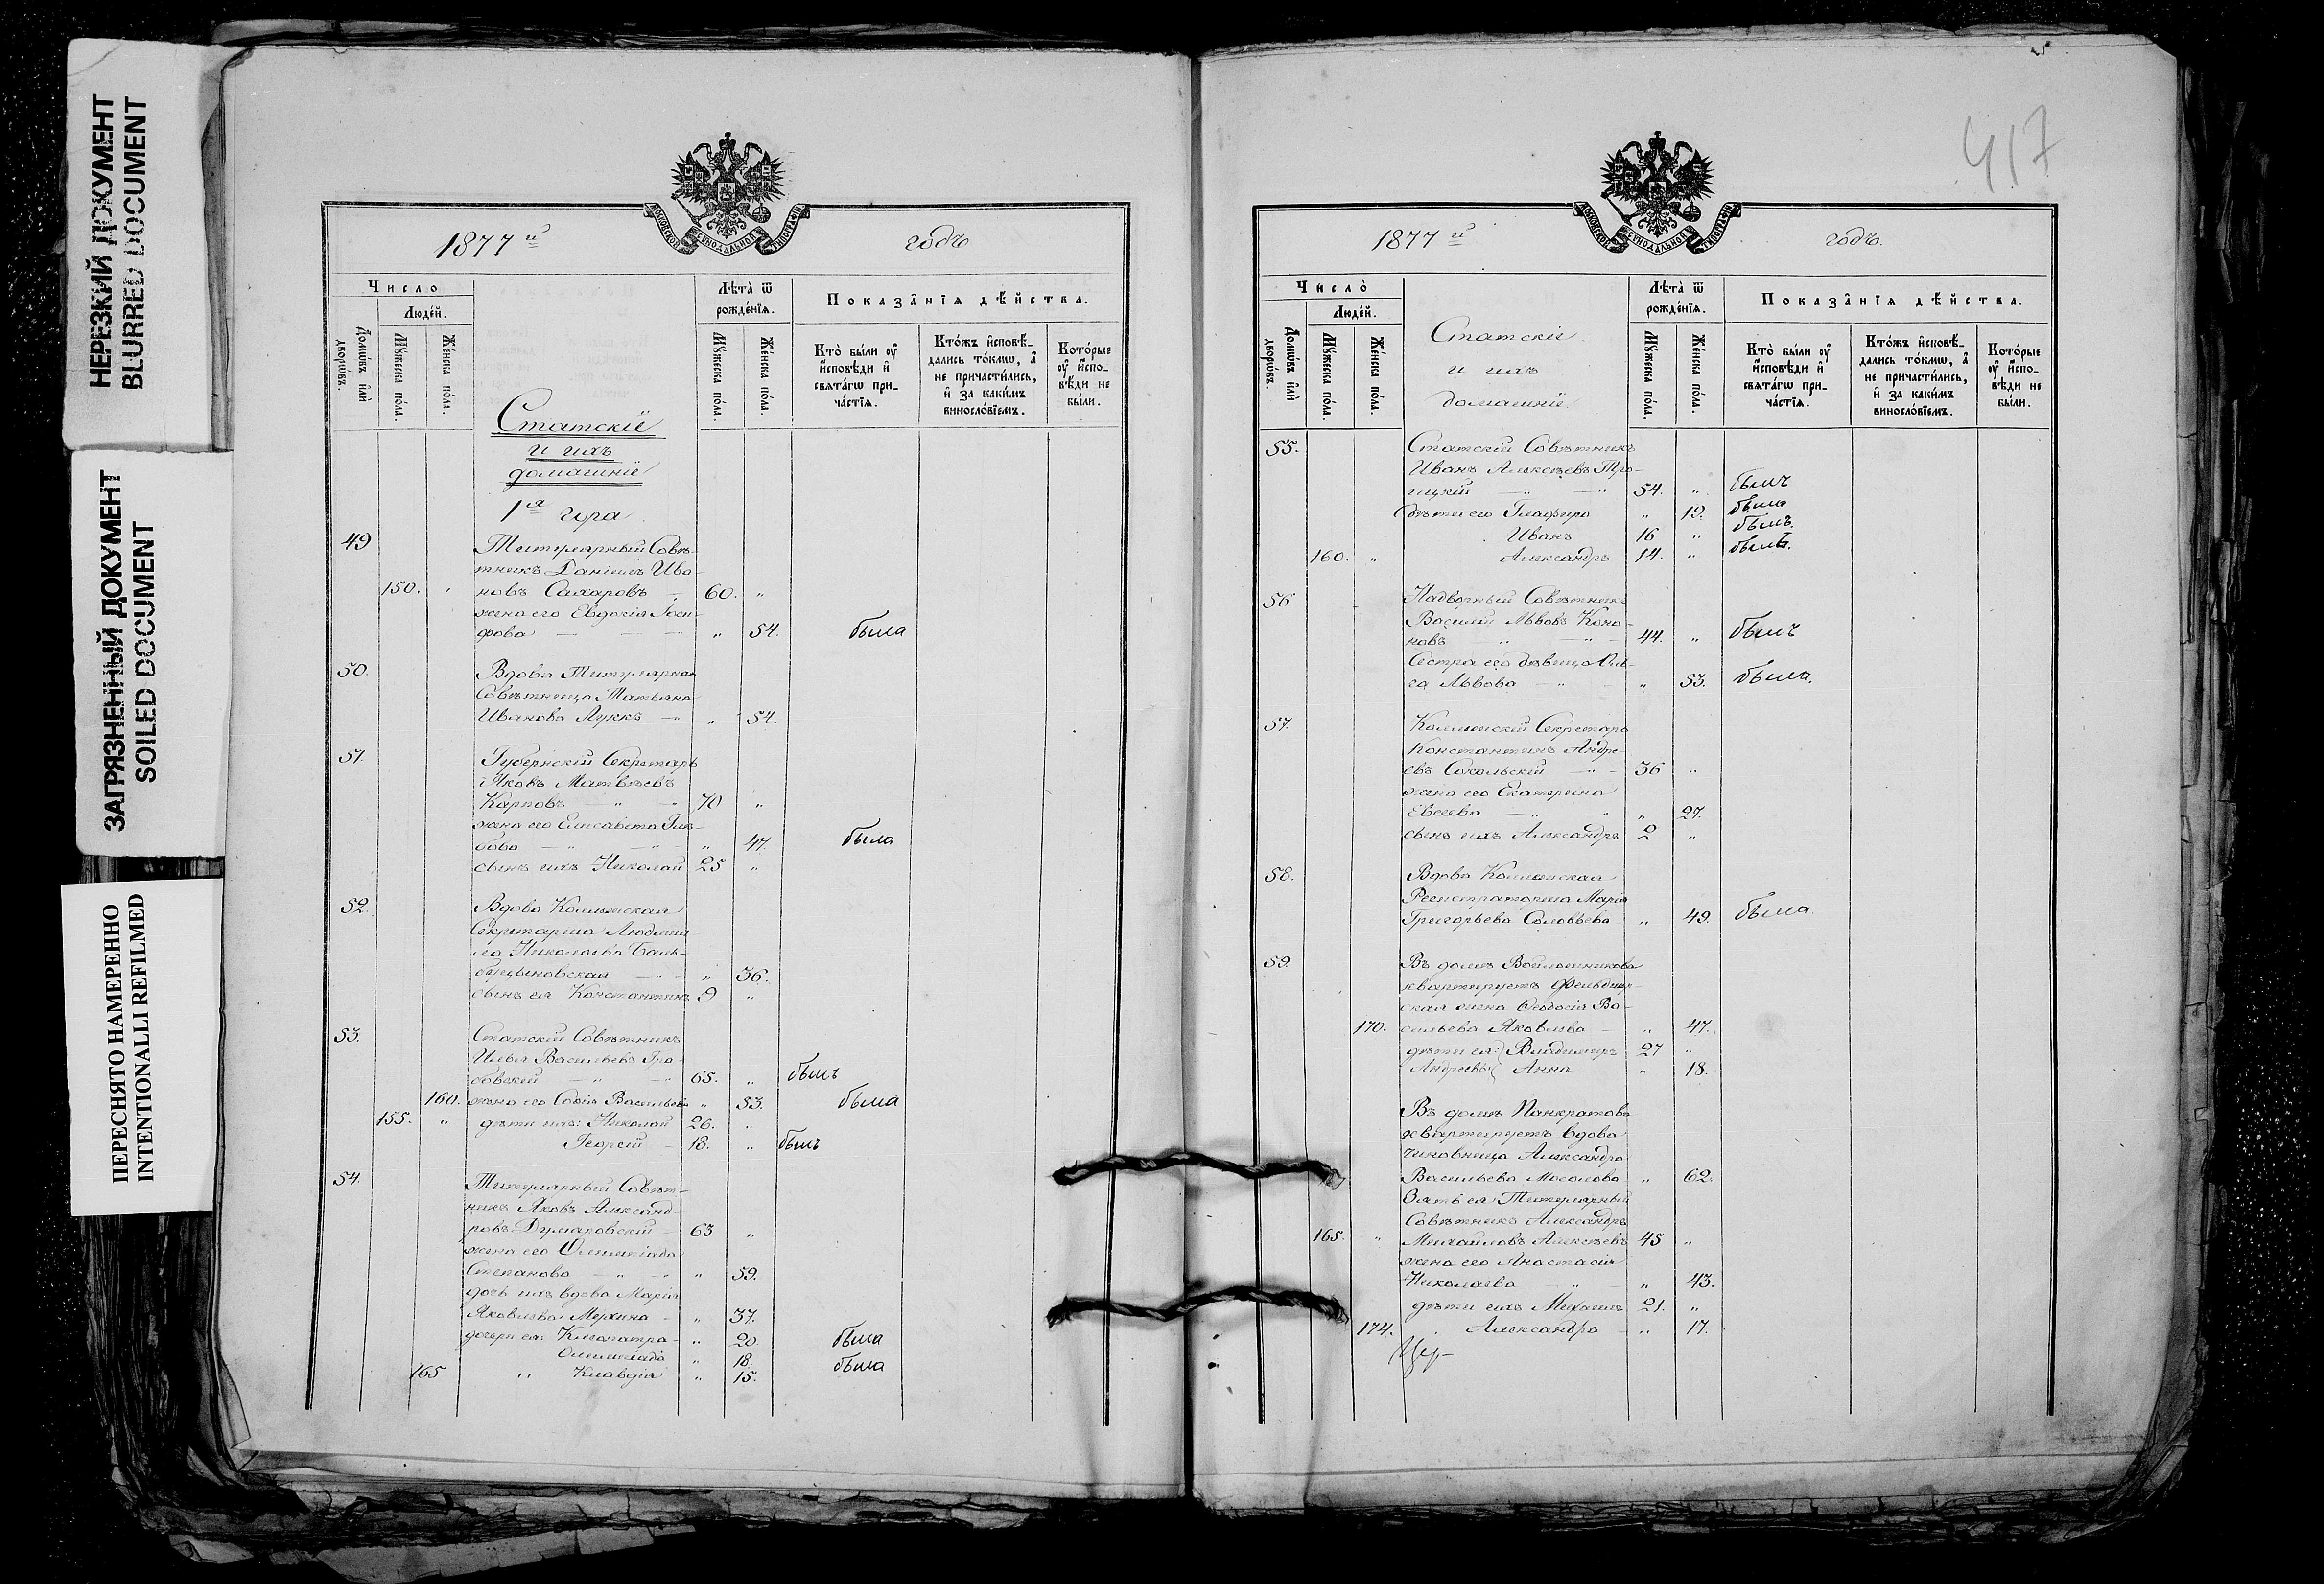 НЕРЕЗКИЙ ДОКУМЕНТ
BLURRED DOCUMENT
ЗАГРЯЗНЕННЫЙ ДОКУМЕНТ
SOILED DOCUMENT
ПЕРЕСНЯТО НАМЕРЕННО
INTENTIONALLI REFILMED
МОСКОВСКОЙ СѴНОДАЛЬНОЙ ТИПОГРАФІИ
1877 й годъ
Число
Людей.
Домѡвъ или дворѡвъ.
Мꙋжеска пола.
Женска пола.
Лѣта ѿ рожденїѧ.
Мꙋжеска пола.
Женска пола.
Показанїѧ дѣйства.
Кто были ᲂу исповѣди и свѧтагѡ причастїѧ.
Ктожъ исповѣдались токмѡ, а не причастились, и за какимъ винословїемъ.
Которые ᲂу исповѣди не были.
Статскіе
и ихъ
домашніе
1я гора
49 Титулярный Совѣ-
тникъ Даніилъ Ива-
150. „ новъ Сахаровъ — 60. „
жена его Евдокія Іоси-
фова — „ 54. была
50. Вдова Титулярная
Совѣтница Татьяна
Иванова Луккъ — „ 54.
51. Губернскій Секретарь
Іяковъ Матвѣевъ
Карповъ — „ 70 „
жена его Елисавета Глѣ-
бова — „ 47. была
сынъ ихъ Николай 25 „
52. Вдова Коллежская
Секретарша Людми
ла Николаева
„ 36.
сынъ ея Константинъ 9 „
53. Статскій Совѣтникъ
Илья Васильевъ Гра-
бовскій — „ 65. „ былъ
160. жена его Софія Васильева „ 53. была
155. „ дѣти ихъ: Николай 26. „
Георгій — 18. „ былъ
54. Титулярный Совѣт-
никъ Яковъ Александ-
ровъ Думаровскій — 63 „
жена его Олимпіада
Степанова — „ „ 59.
дочь ихъ вдова Марія
Яковлева Мерхина — „ 37.
дочери ея: Клеопатра — „ 20. была
Олимпіада „ 18. была
165 „ Клавдія „ 15.
417
МОСКОВСКОЙ СѴНОДАЛЬНОЙ ТИПОГРАФІИ
1877 й годъ.
Число
Людей.
Домѡвъ или дворѡвъ.
Мꙋжеска пола.
Женска пола.
Статскіе
и ихъ
домашніе
Лѣта ѿ рожденїѧ.
Мꙋжеска пола.
Женска пола.
Показанїѧ дѣйства.
Кто были ᲂу исповѣди и свѧтагѡ причастїѧ.
Ктожъ исповѣдались токмѡ, а не причастились, и за какимъ винословїемъ.
Которые ᲂу исповѣди не были.
55. Статскій Совѣтникъ
Иванъ Алексѣевъ Тро-
ицкій — „ — „ 54. „ былъ
дѣти его Глафира „ 19. была
Иванъ 16 „ былъ.
160. „ Александръ 14. „ былъ.
56 Надворный Совѣтникъ
Василій Львовъ Коно-
новъ „ — „ 44. „ былъ
Сестра его дѣвица Оль-
га Львова — „ „ 53. была.
57. Коллежскій Секретарь
Константинъ Андре-
евъ Сокольскій — „ 36 „
жена его Екатерина
Евсеева — „ „ 27.
сынъ ихъ Александръ 2 „
58. Вдова Коллежская
Регистраторша Марія
Григорьева Соловьева „ 49. была.
59. Въ домѣ Войлошникова
квартируетъ Фельдшер-
ская жена Ѳеодосія Ва-
170. сильева Яковлева — „ 47.
дѣти ея: Владимиръ 27 „
Андреевы Анна „ 18.
Въ домѣ Панкратова
квартируетъ вдова
чиновница Александра
Васильева Мосолова „ 62.
Зять ея Титулярный
Совѣтникъ Александръ
165. „ Михайловъ Алексѣевъ 45 „
жена его Анастасія
Николаева — „ „ 43.
дѣти ихъ Михаилъ 21. „
174. Александра — „ 17.